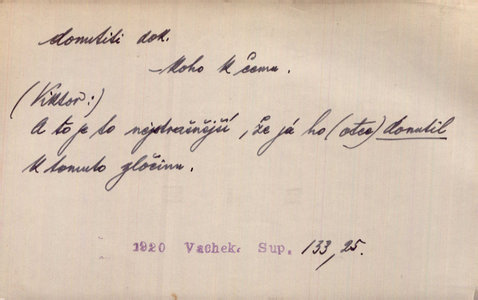 donutiti dok.
koho k čemu.
(Viktor:)
A to je to nejstrašnější, že já ho (otce) donutil
k tomuto zločinu.
1920 Vachek. Sup. 133, 25.